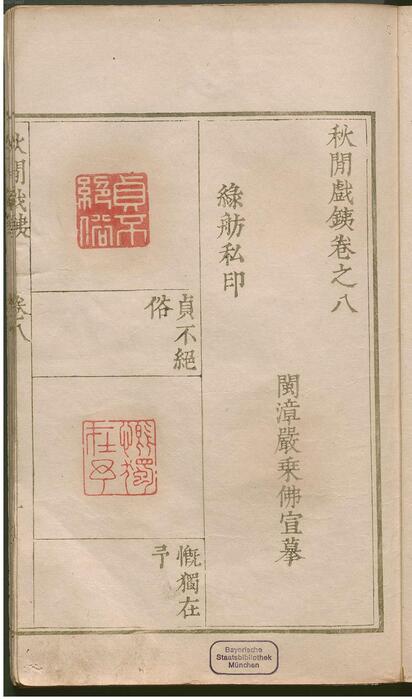 秋閒戲銕卷之八
閩漳嚴乘佛宣摹
綠舫私印
貞不
絕俗
貞不絕
俗
慨獨
在予
慨獨在
予
秋閒戲銕 卷八
Bayerische
Staatsbibliothek
München